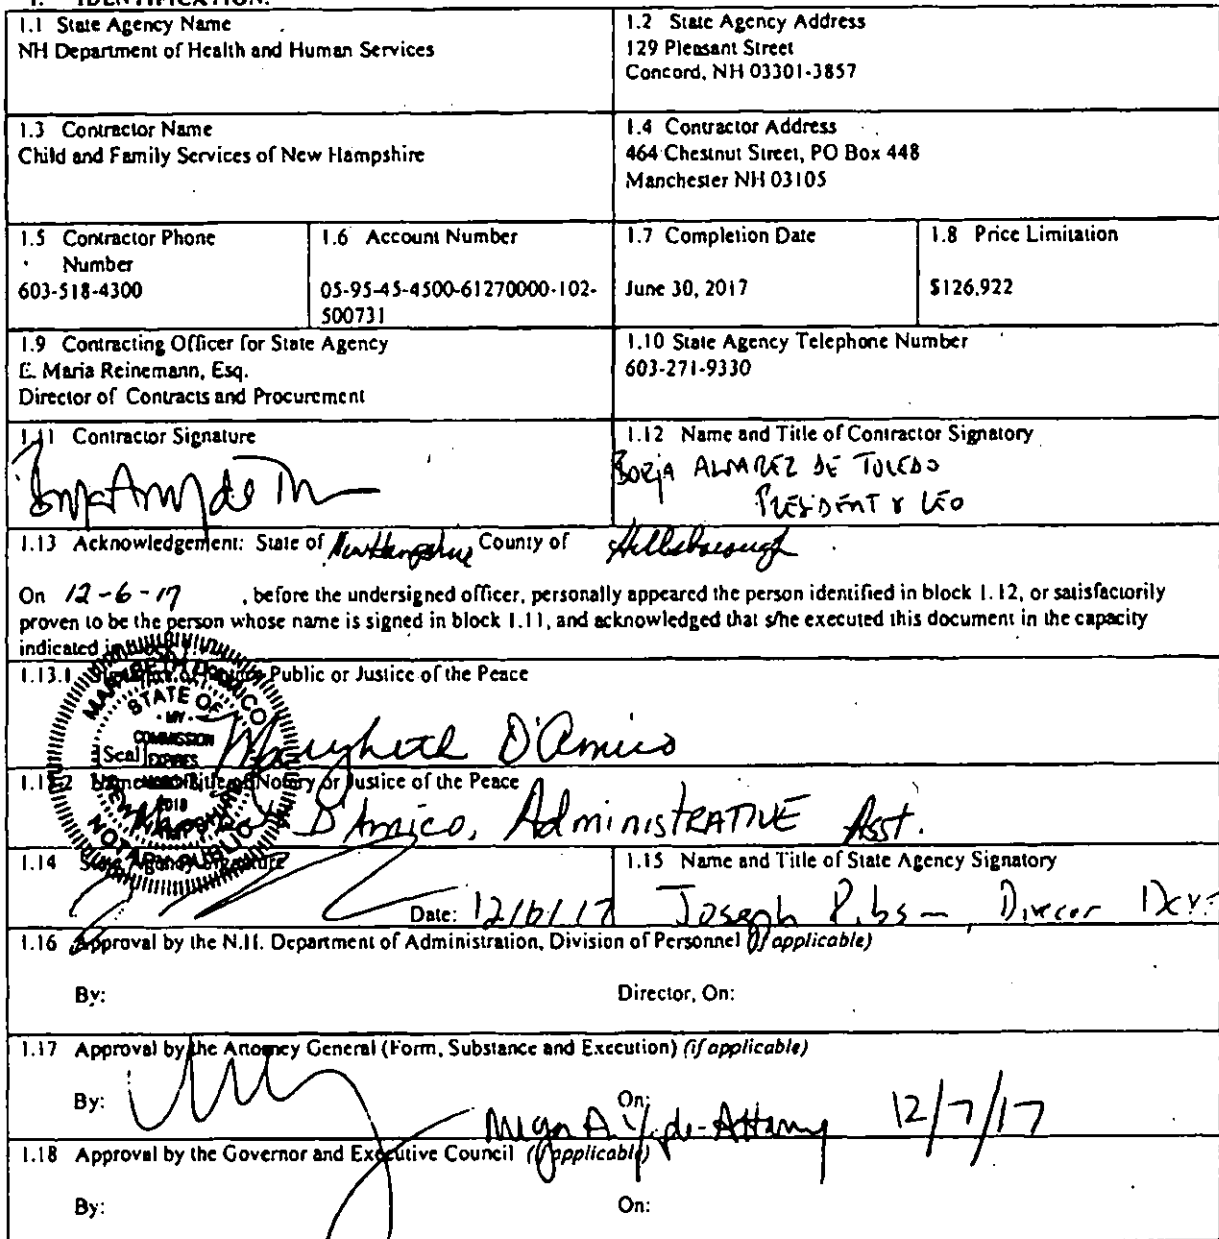 1. IDENTIFICATION.
1.1 State Agency Name
NH Department of Health and Human Services
1.2 State Agency Address
129 Pleasant Street
Concord, NH 03301-3857
1.3 Contractor Name
Child and Family Services of New Hampshire
1.4 Contractor Address
464 Chestnut Street, PO Box 448
Manchester NH 03105
1.5 Contractor Phone
Number
603-518-4300
1.6 Account Number
05-95-45-4500-61270000-102-
500731
1.7 Completion Date
June 30, 2017
1.8 Price Limitation
$126,922
1.9 Contracting Officer for State Agency
E. Maria Reinemann, Esq.
Director of Contracts and Procurement
1.10 State Agency Telephone Number
603-271-9330
1.11 Contractor Signature
1.12 Name and Title of Contractor Signatory
Borja ALVAREZ DE TOLEDO
PRESIDENT & CEO
1.13 Acknowledgement: State of New Hampshire County of Hillsborough
On 12-6-17 , before the undersigned officer, personally appeared the person identified in block 1.12, or satisfactorily
proven to be the person whose name is signed in block 1.11, and acknowledged that s/he executed this document in the capacity
indicated in block
1.13.1 Public or Justice of the Peace
MARYBETH D'AMICO
STATE OF
MY
COMMISSION
EXPIRES
2018
NEW HAMPSHIRE
NOTARY PUBLIC
[Seal] Marybeth D'Amico
1.13.2 Name and Title of Notary or Justice of the Peace
D'Amico, ADMINISTRATIVE Asst.
1.14 State Agency Signature
Date: 12/6/17
1.15 Name and Title of State Agency Signatory
Joseph Director
1.16 Approval by the N.H. Department of Administration, Division of Personnel (if applicable)
By: Director, On:
1.17 Approval by the Attorney General (Form, Substance and Execution) (if applicable)
By: On:
Attorney 12/7/17
1.18 Approval by the Governor and Executive Council (if applicable)
By: On: